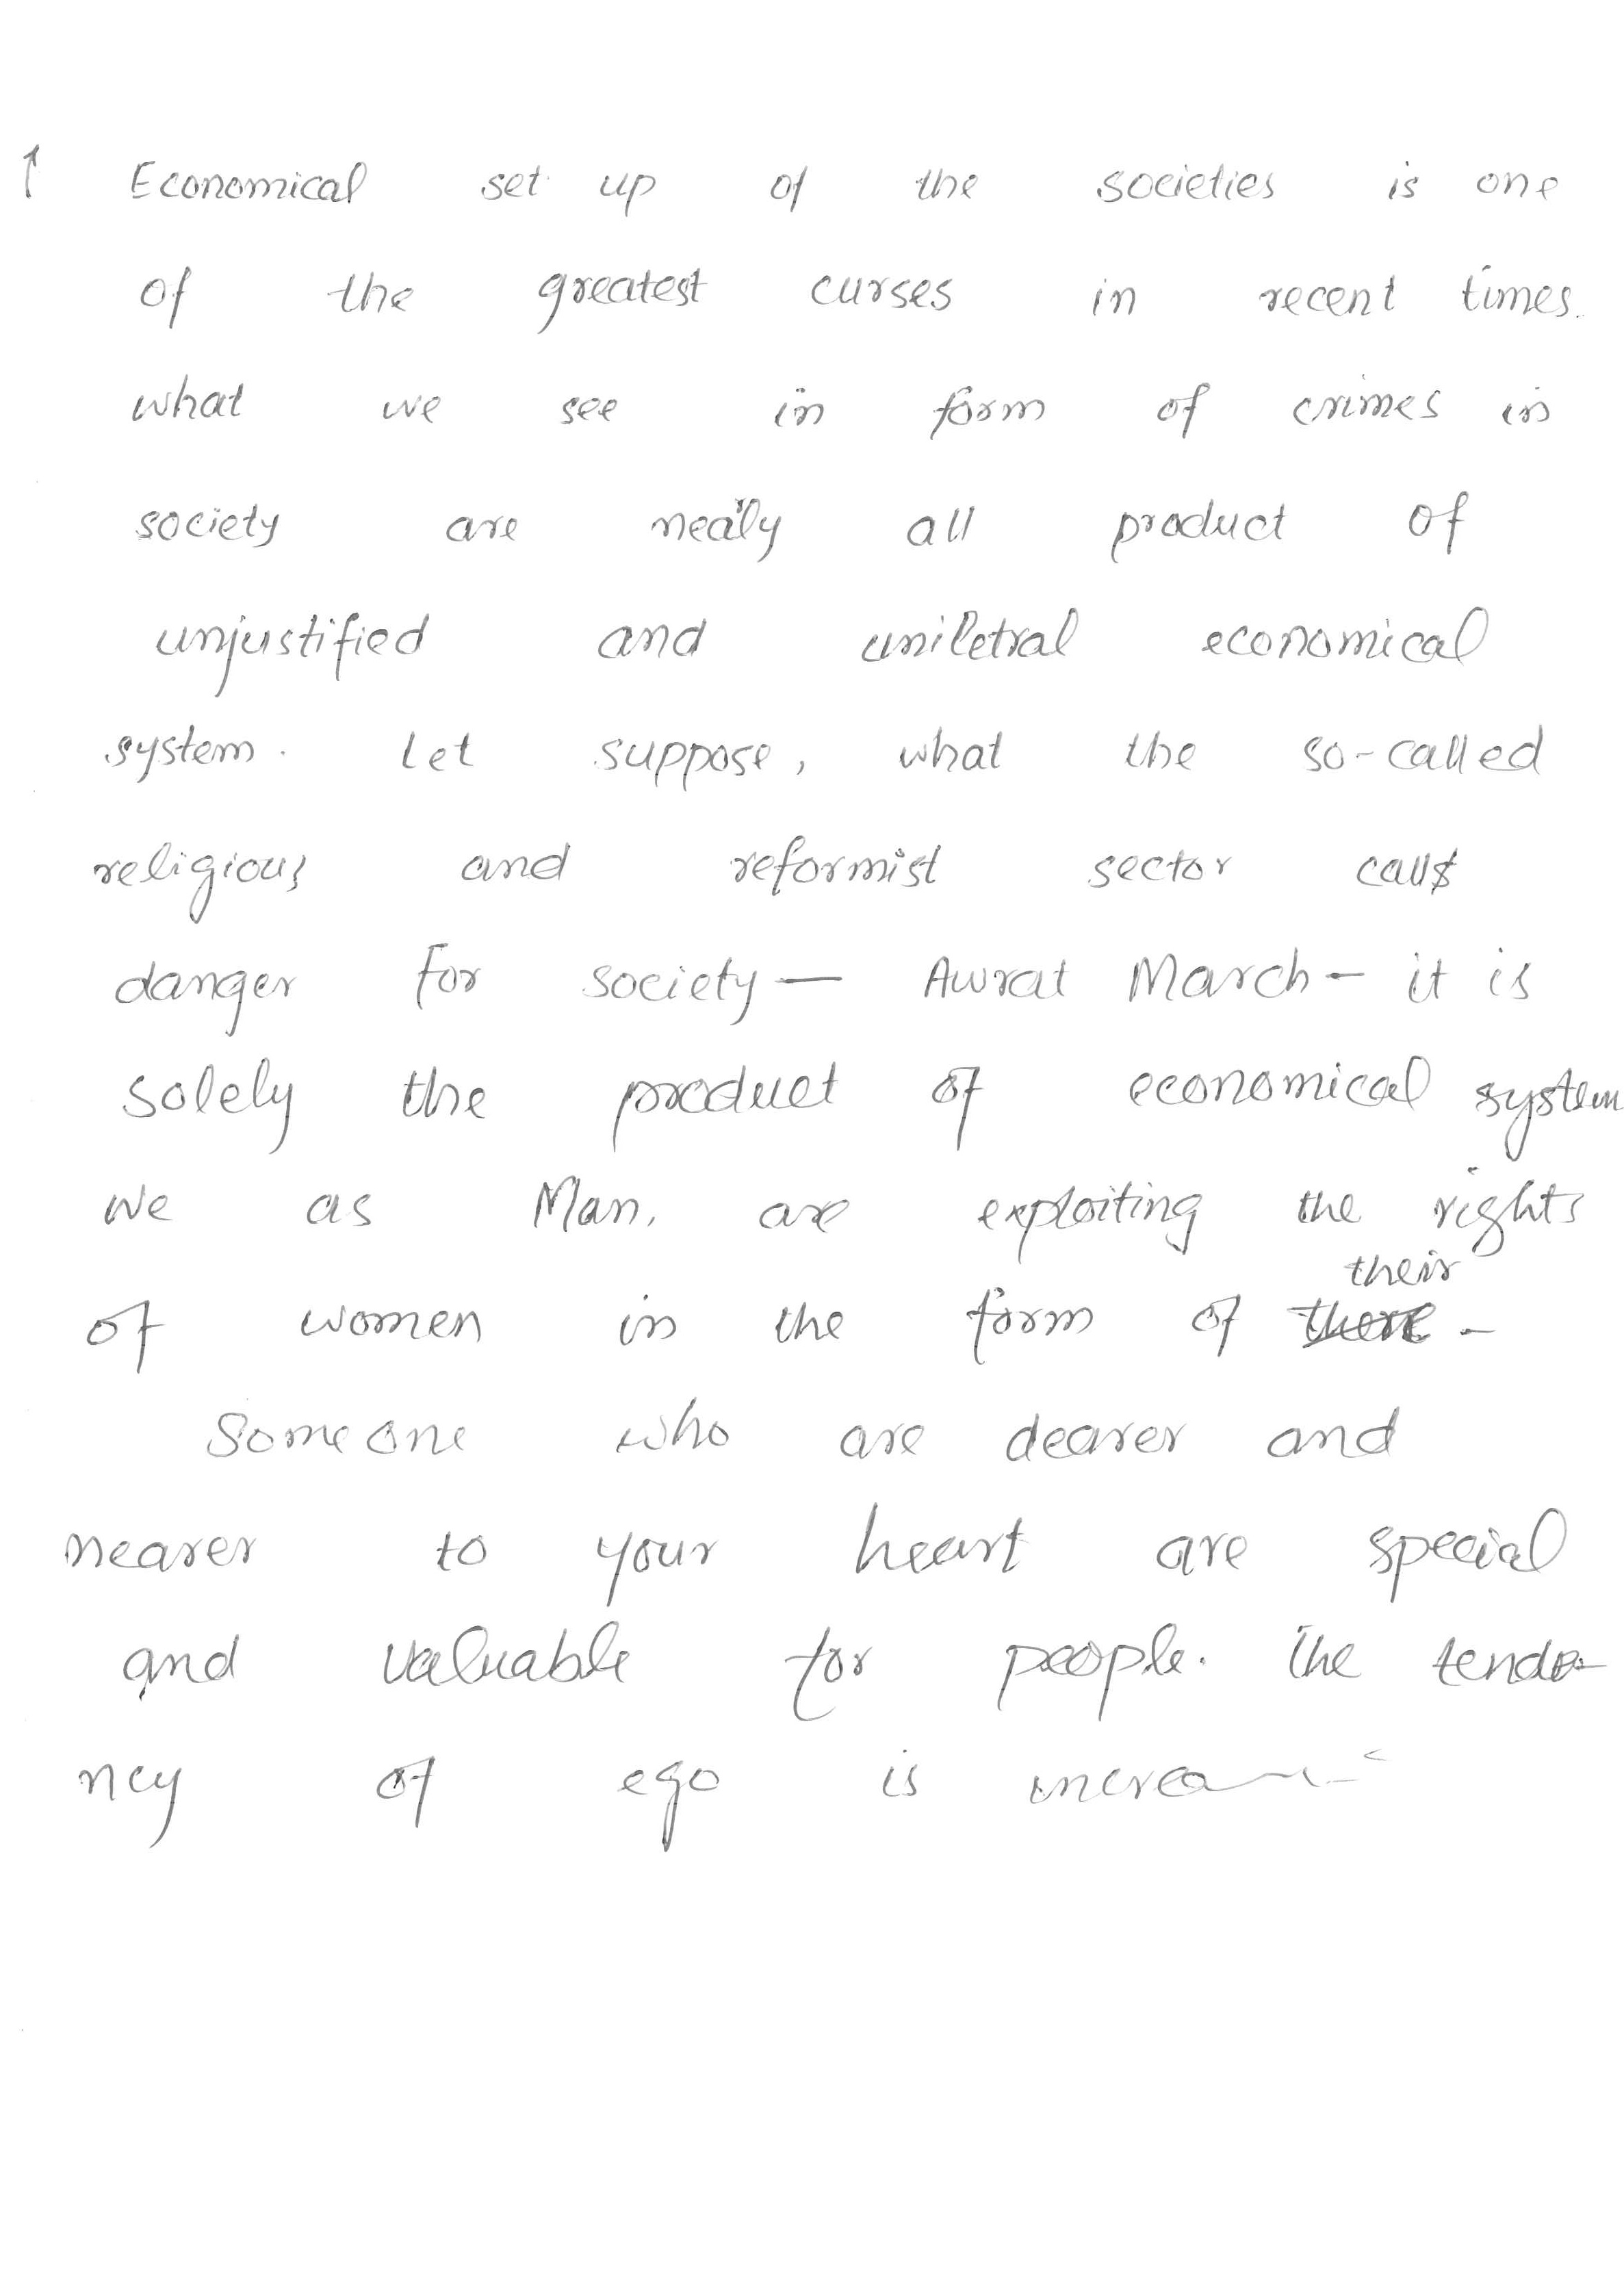 ↑ Economical set up of the societies is one
of the greatest curses in recent times.
what we see in form of crimes in
society are nearly all product of
unjustified and uniletral economical
system. Let suppose, what the so-called
religious and reformist sector calls
danger for society — Awrat March - it is
solely the product of economical system
we as Man, are exploiting the rights
their
of women in the form of there -
Someone who are dearer and
nearer to your heart are special
and valuable for people. The tende-
ncy of ego is